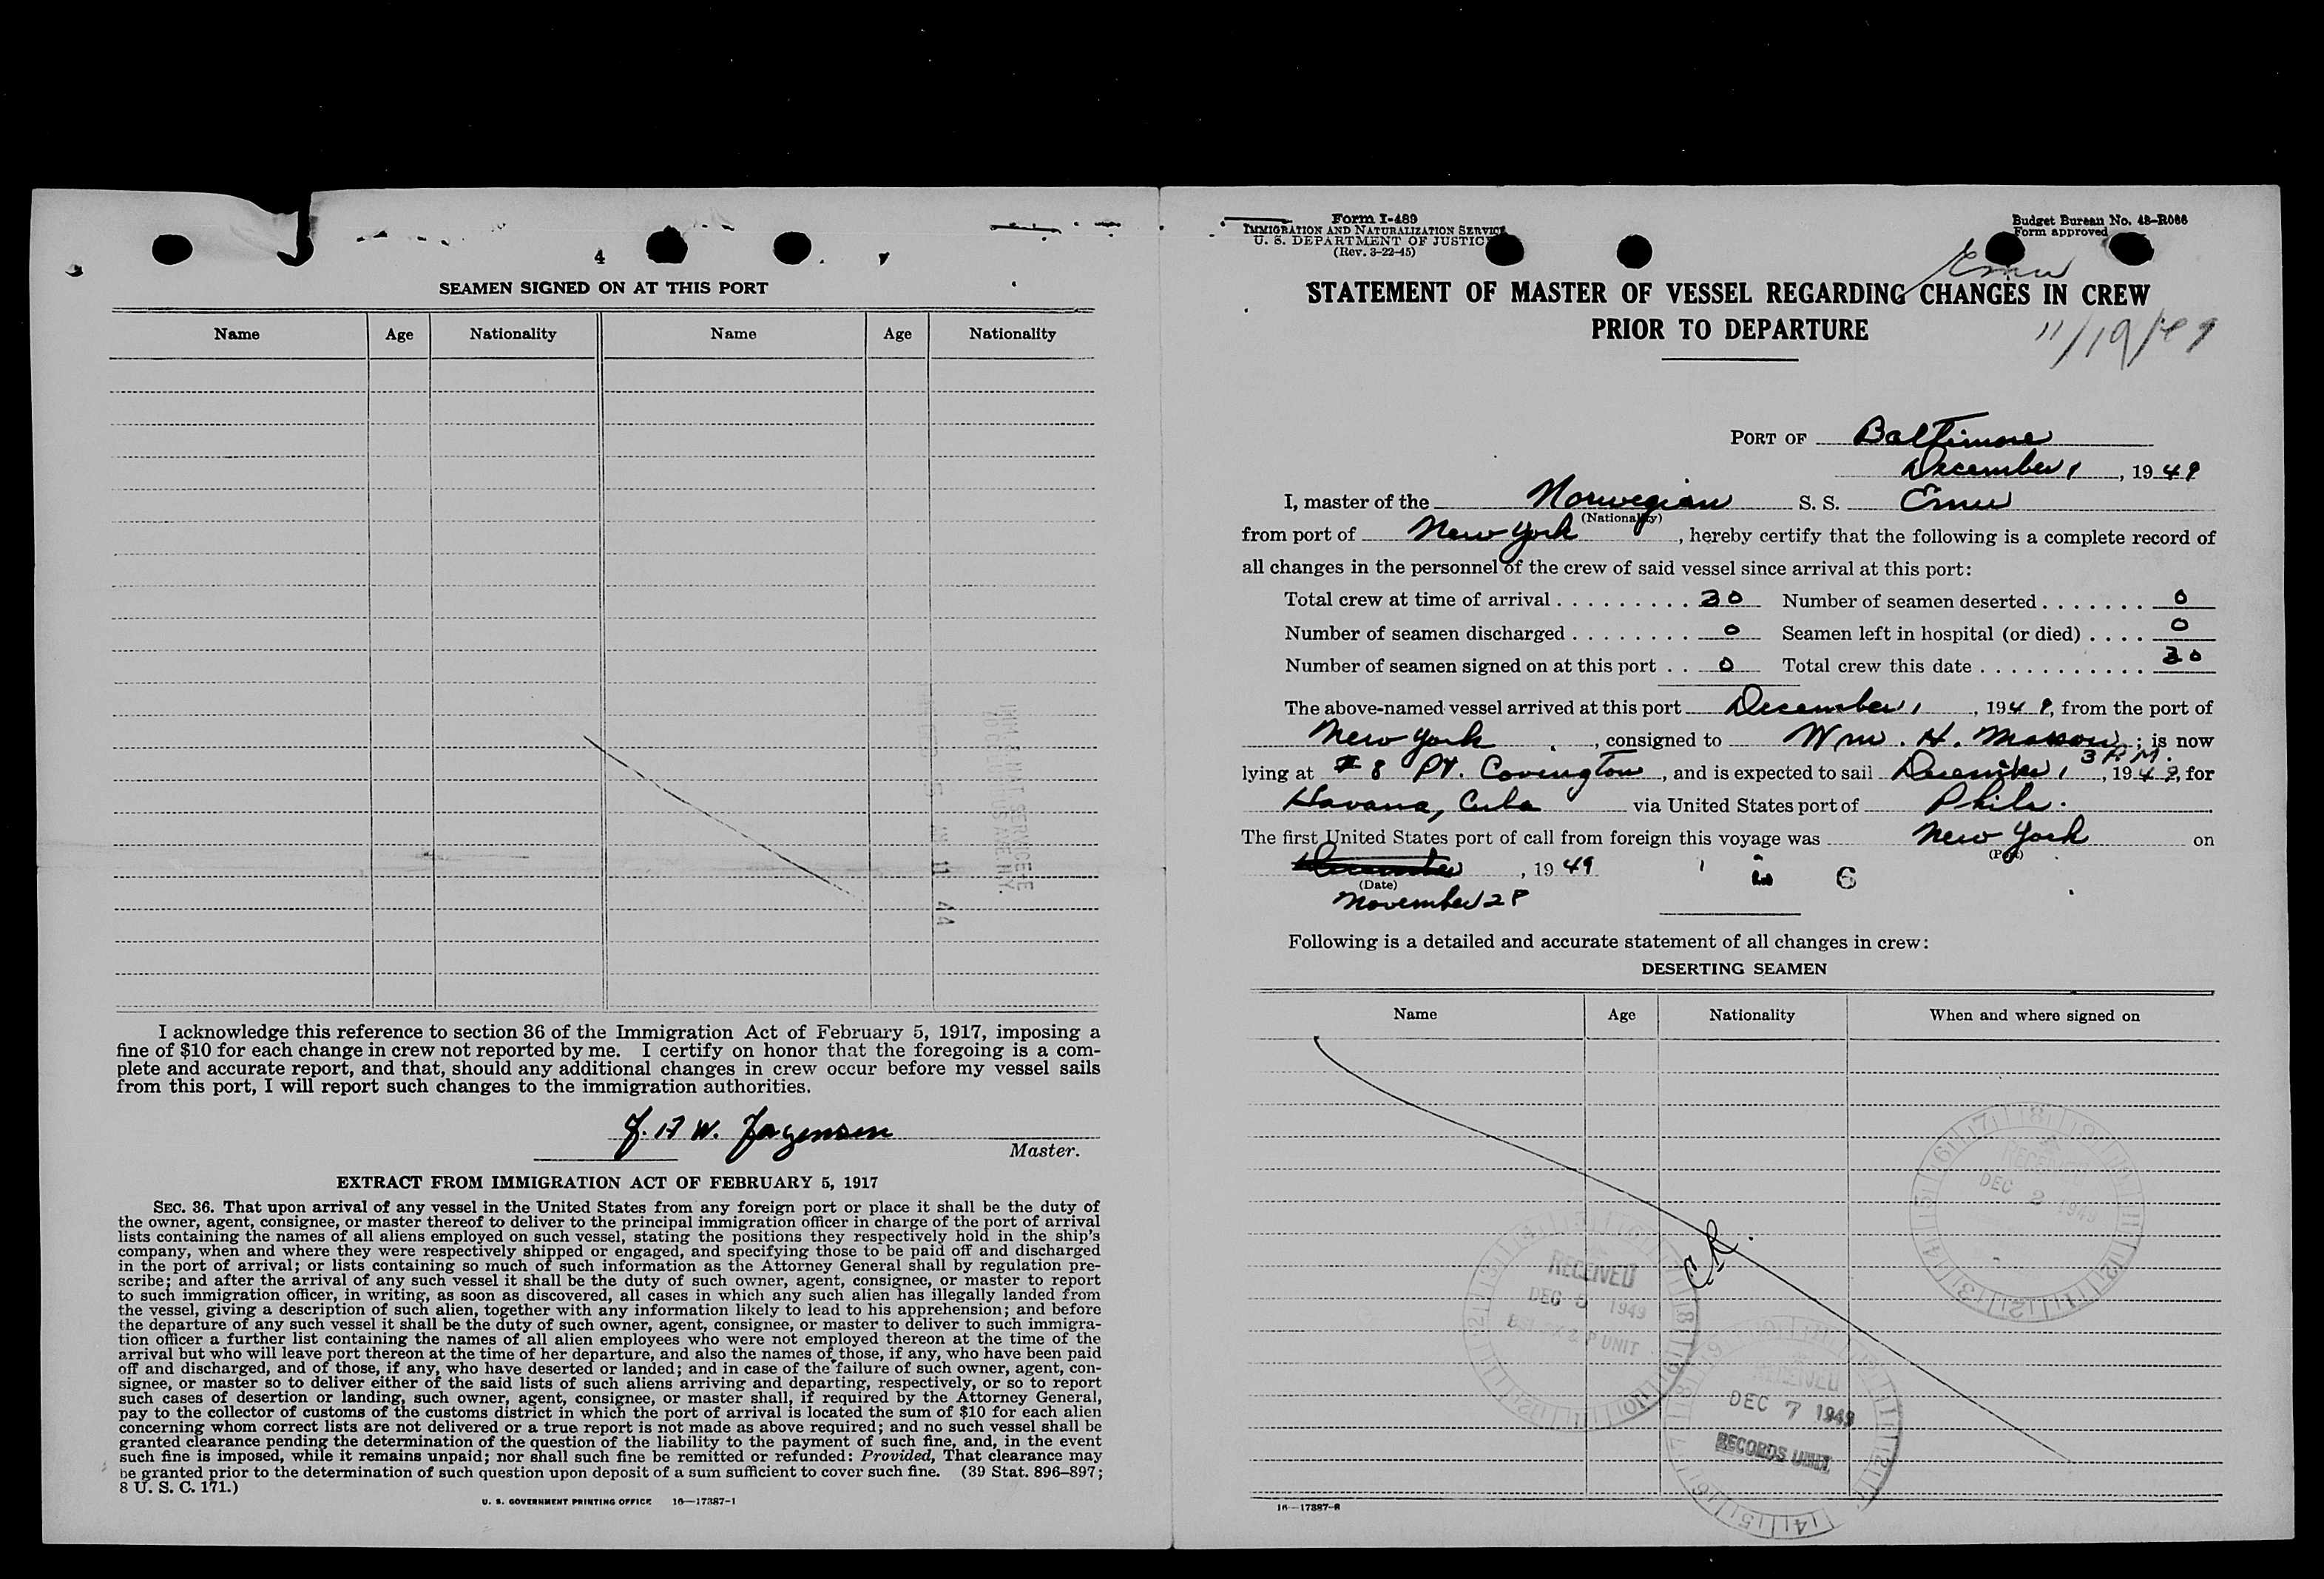 4
SEAMEN SIGNED ON AT THIS PORT
Name Age Nationality Name Age Nationality
I acknowledge this reference to section 36 of the Immigration Act of February 5, 1917, imposing a
fine of $10 for each change in crew not reported by me. I certify on honor that the foregoing is a com-
plete and accurate report, and that, should any additional changes in crew occur before my vessel sails
from this port, I will report such changes to the immigration authorities.
Jorgensen
Master.
EXTRACT FROM IMMIGRATION ACT OF FEBRUARY 5, 1917
SEC. 36. That upon arrival of any vessel in the United States from any foreign port or place it shall be the duty of
the owner, agent, consignee, or master thereof to deliver to the principal immigration officer in charge of the port of arrival
lists containing the names of all aliens employed on such vessel, stating the positions they respectively hold in the ship's
company, when and where they were respectively shipped or engaged, and specifying those to be paid off and discharged
in the port of arrival; or lists containing so much of such information as the Attorney General shall by regulation pre-
scribe; and after the arrival of any such vessel it shall be the duty of such owner, agent, consignee, or master to report
to such immigration officer, in writing, as soon as discovered, all cases in which any such alien has illegally landed from
the vessel, giving a description of such alien, together with any information likely to lead to his apprehension; and before
the departure of any such vessel it shall be the duty of such owner, agent, consignee, or master to deliver to such immigra-
tion officer a further list containing the names of all alien employees who were not employed thereon at the time of the
arrival but who will leave port thereon at the time of her departure, and also the names of those, if any, who have been paid
off and discharged, and of those, if any, who have deserted or landed; and in case of the failure of such owner, agent, con-
signee, or master so to deliver either of the said lists of such aliens arriving and departing, respectively, or so to report
such cases of desertion or landing, such owner, agent, consignee, or master shall, if required by the Attorney General,
pay to the collector of customs of the customs district in which the port of arrival is located the sum of $10 for each alien
concerning whom correct lists are not delivered or a true report is not made as above required; and no such vessel shall be
granted clearance pending the determination of the question of the liability to the payment of such fine, and, in the event
such fine is imposed, while it remains unpaid; nor shall such fine be remitted or refunded: Provided, That clearance may
be granted prior to the determination of such question upon deposit of a sum sufficient to cover such fine. (39 Stat. 896–897;
8 U. S. C. 171.)
U. S. GOVERNMENT PRINTING OFFICE 16—17387-1
Form I-489
IMMIGRATION AND NATURALIZATION SERVICE
U. S. DEPARTMENT OF JUSTICE
(Rev. 3-22-45)
Budget Bureau No. 43–R066
Form approved
Emu
STATEMENT OF MASTER OF VESSEL REGARDING CHANGES IN CREW
PRIOR TO DEPARTURE
11/19/49
PORT OF Baltimore
December 1, 1949
I, master of the Norwegian S. S. Emu
(Nationality)
from port of New York, hereby certify that the following is a complete record of
all changes in the personnel of the crew of said vessel since arrival at this port:
Total crew at time of arrival 30 Number of seamen deserted 0
Number of seamen discharged 0 Seamen left in hospital (or died) 0
Number of seamen signed on at this port 0 Total crew this date 30
The above-named vessel arrived at this port December 1, 1949, from the port of
New York, consigned to Wm. H. Masson; is now
3 P.M.
lying at #8 Pt. Covington, and is expected to sail December 1, 1949, for
Havana, Cuba via United States port of Phila.
The first United States port of call from foreign this voyage was New York on
(Port)
December, 1949
(Date)
November 28
6
Following is a detailed and accurate statement of all changes in crew:
DESERTING SEAMEN
Name Age Nationality When and where signed on
RECEIVED
DEC 2 1949
C.R.
RECEIVED
DEC 5 1949
P UNIT
RECEIVED
DEC 7 1949
RECORDS UNIT
16—17387-R